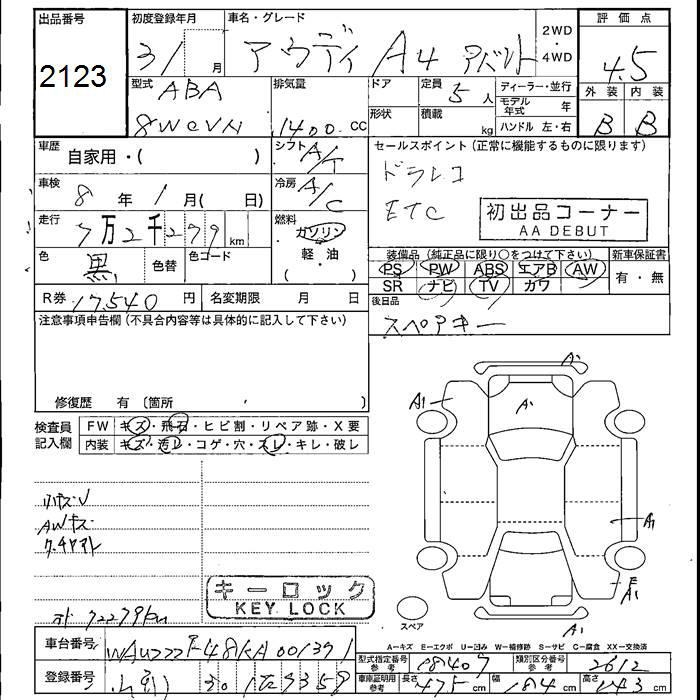 出品番号
2123
初度登録年月
31 月
車名・グレード
アウディ A4 アバント
2WD
・
4WD
評価点
4.5
型式 ABA
8WCVN
排気量
1400 cc
ドア
定員 5人
形状
積載 kg
ディーラー・並行
モデル年式 年
ハンドル 左・右
外装 内装
B B
車歴 自家用・( )
シフト A/T
車検 8年 1月( 日)
冷房 A/C
走行 7万2千279 km
燃料 ガソリン
(軽・油)
色 黒 色替
色コード
R券 17,540 円
名変期限 月 日
セールスポイント(正常に機能するものに限ります)
ドラレコ
ETC
初出品コーナー
AA DEBUT
装備品(純正品に限り○をつけて下さい)
新車保証書
PS PW ABS エアB AW
SR ナビ TV カワ
有・無
後日品
スペアキー
注意事項申告欄(不具合内容等は具体的に記入して下さい)
修復歴 有(箇所 )
検査員記入欄
FW キズ・飛石・ヒビ割・リペア跡・X要
内装 キズ・汚レ・コゲ・穴・スレ・キレ・破レ
AWキズ
72279km
キーロック
KEY LOCK
A1
A1
A1
スペア
A-キズ E-エクボ U-凹み W-補修跡 S-サビ C-腐食 XX-交換済
車台番号 WAUZZZF48KA001391
登録番号
型式指定番号参考 18409
類別区分番号参考 2612
車庫証明用参考 長さ 475 cm 幅 184 cm 高さ 143 cm